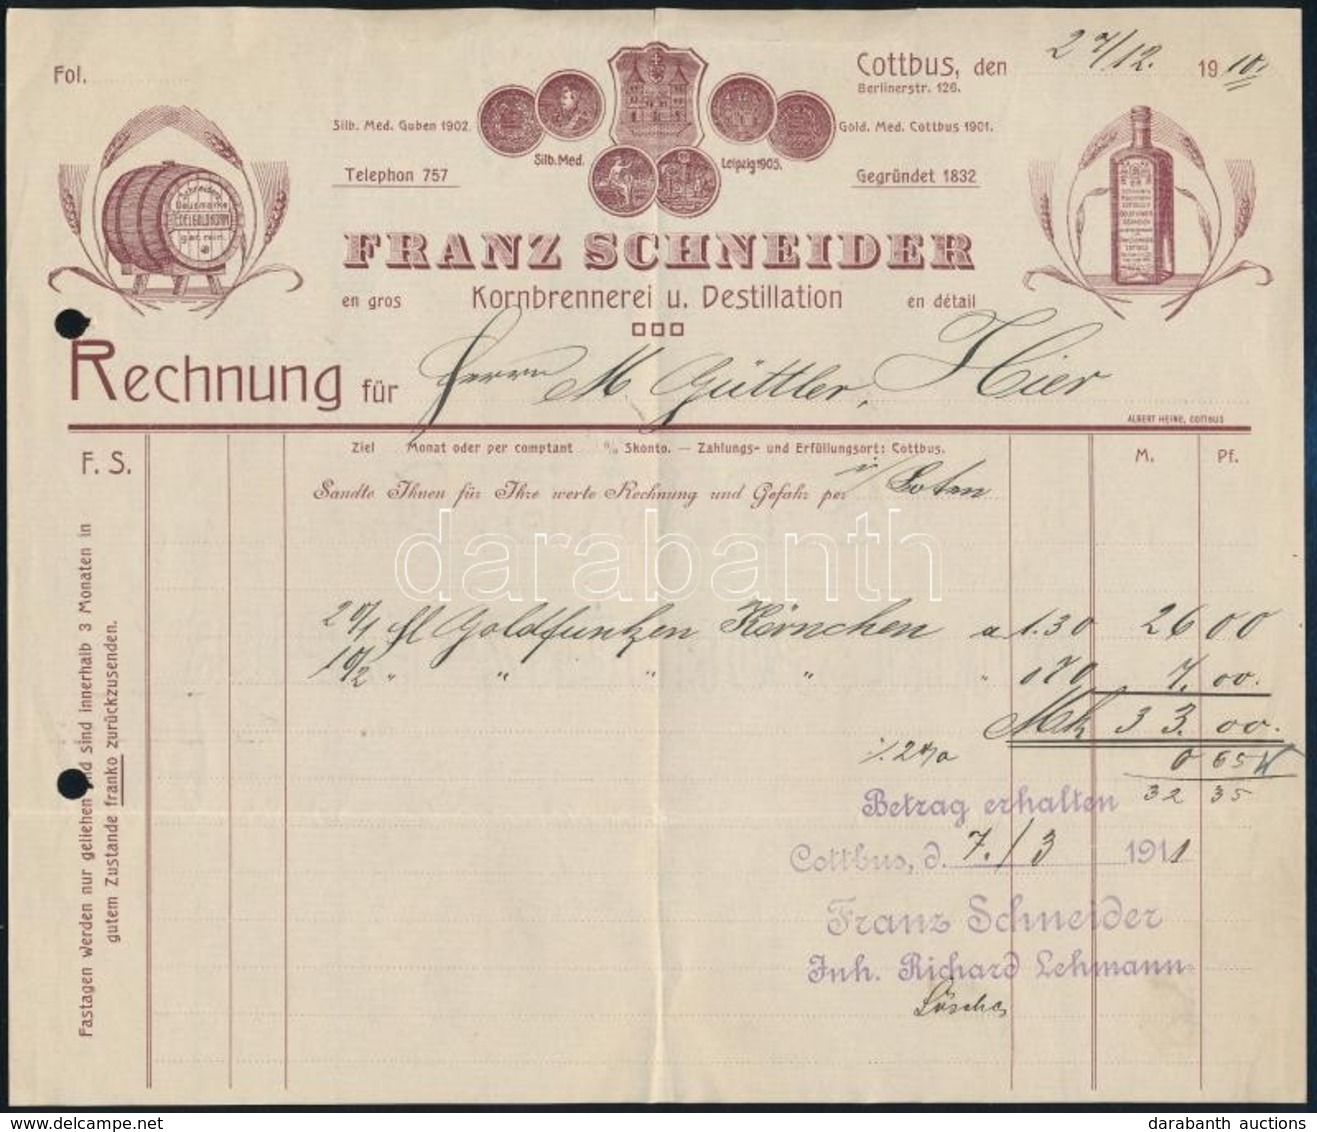 Fol.
Cottbus, den 27/12. 1910.
Berlinerstr. 126.
Silb. Med. Guben 1902.
Gold. Med. Cottbus 1901.
Silb. Med.
Leipzig 1905.
Telephon 757
Gegründet 1832
Schneiders
Hausmarke
EDELGOLDKORN
gar. rein.
FRANZ SCHNEIDER
en gros Kornbrennerei u. Destillation en détail
Rechnung für Herrn M. Güttler, Hier
ALBERT HEINE, COTTBUS
F. S.
Ziel Monat oder per comptant % Skonto. — Zahlungs- und Erfüllungsort: Cottbus.
M. Pf.
Sandte Ihnen für Ihre werte Rechnung und Gefahr per Boten
darabanth
20/1 fl Goldfunken Körnchen a 1.30 26 00
10/2 " " " " " 070 7. 00.
Mk 33.00.
./. 2% 0 65
32 35
Betrag erhalten
Cottbus, d. 7./3 1911
Franz Schneider
Inh. Richard Lehmann
Fastagen werden nur geliehen und sind innerhalb 3 Monaten in
gutem Zustande franko zurückzusenden.
darabanth auctions